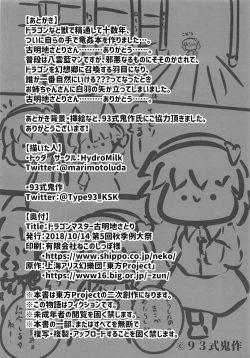 【あとがき】
ドラゴンなど獣で精通して十数年、
ついに自らの手で竜姦本を作りました…。
古明地さとりさん………ありがとう……。
普段は八雲藍マンですが!邪悪なるものにそそのかされて、
ドラゴンを幻想郷に召喚する羽目になり、
誰が一番自然にいける???ってなったとき
お姉ちゃんさんに白羽の矢が立ってしまいました。
古明地さとりさん………ありがとう……。
あとがき背景・挿絵など、93式鬼作氏にご協力頂きました。
ありがとうございます!
【描いた人】
・トッグ サークル:HydroMilk
Twitter:@marimotoluda
・93式鬼作
Twitter:@Type93_KSK
【奥付】
Title:ドラゴンマスター古明地さとり
発行:2018/10/14 第5回秋季例大祭
印刷:有限会社ねこのしっぽ様
・https://www.shippo.co.jp/neko/
原作:上海アリス幻樂団『東方Project』
・https://www16.big.or.jp/~zun/
※本書は東方Projectの二次創作になります。
※この物語はフィクションです。
※未成年者の閲覧を固く禁じます。
※本書の一部、またはすべてを無断で
複写・複製・アップロードすることを固く禁じます。
©93式鬼作